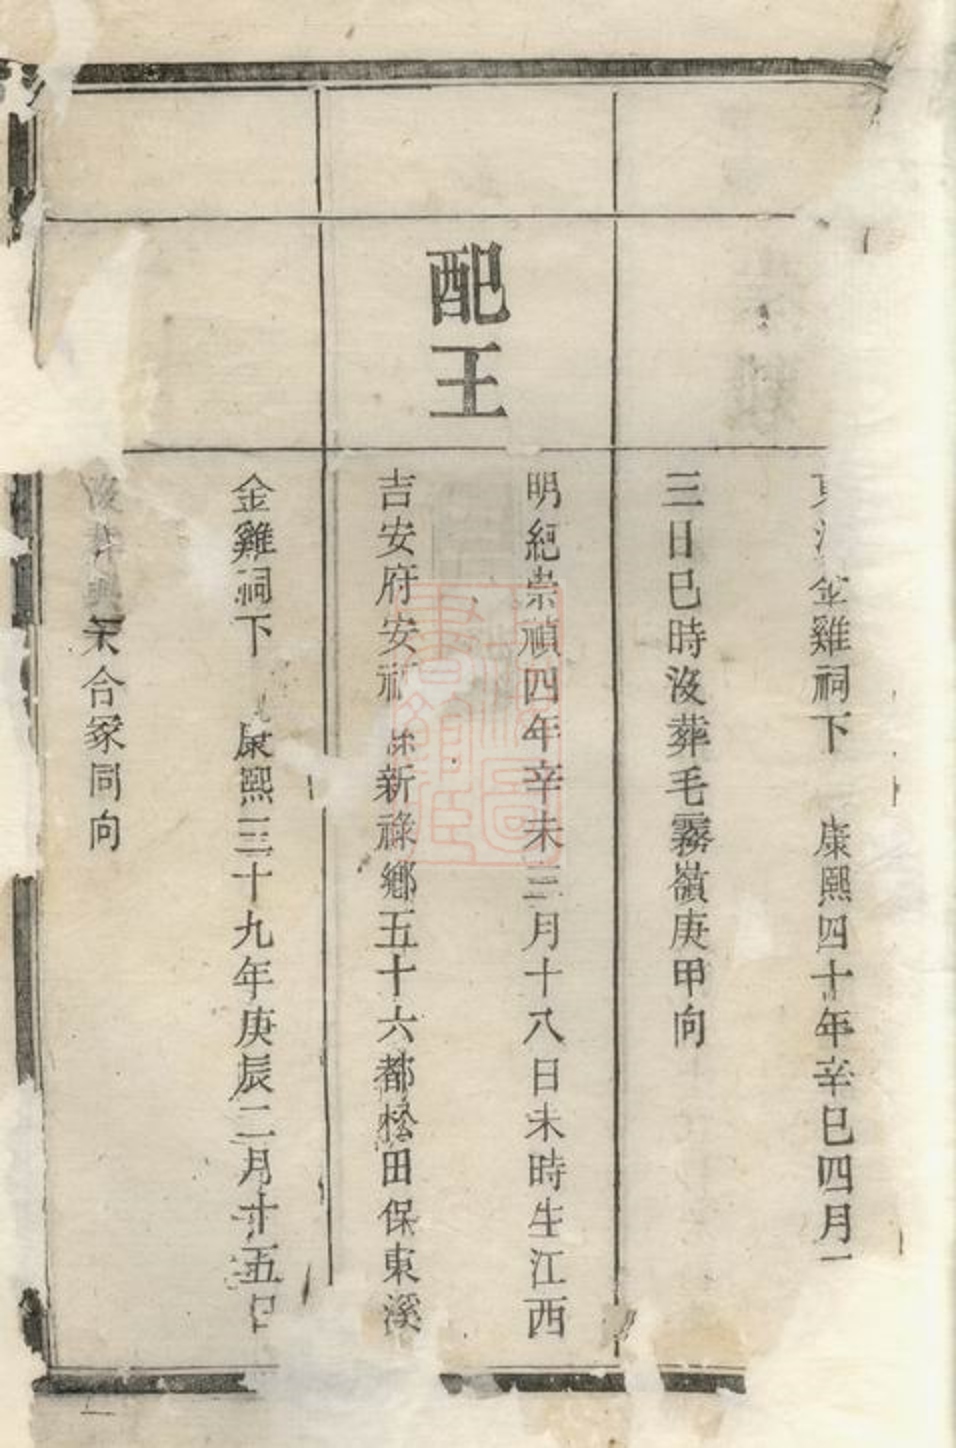 金雞祠下 康熙四十年辛巳四月
三日巳時沒葬毛霧嶺庚甲向
配王
明紀崇禎四年辛未三月十八日未時生江西
吉安府安 新祿鄉五十六都松田保東溪
金雞祠下 康熙三十九年庚辰二月十五日
沒葬與夫合冢同向